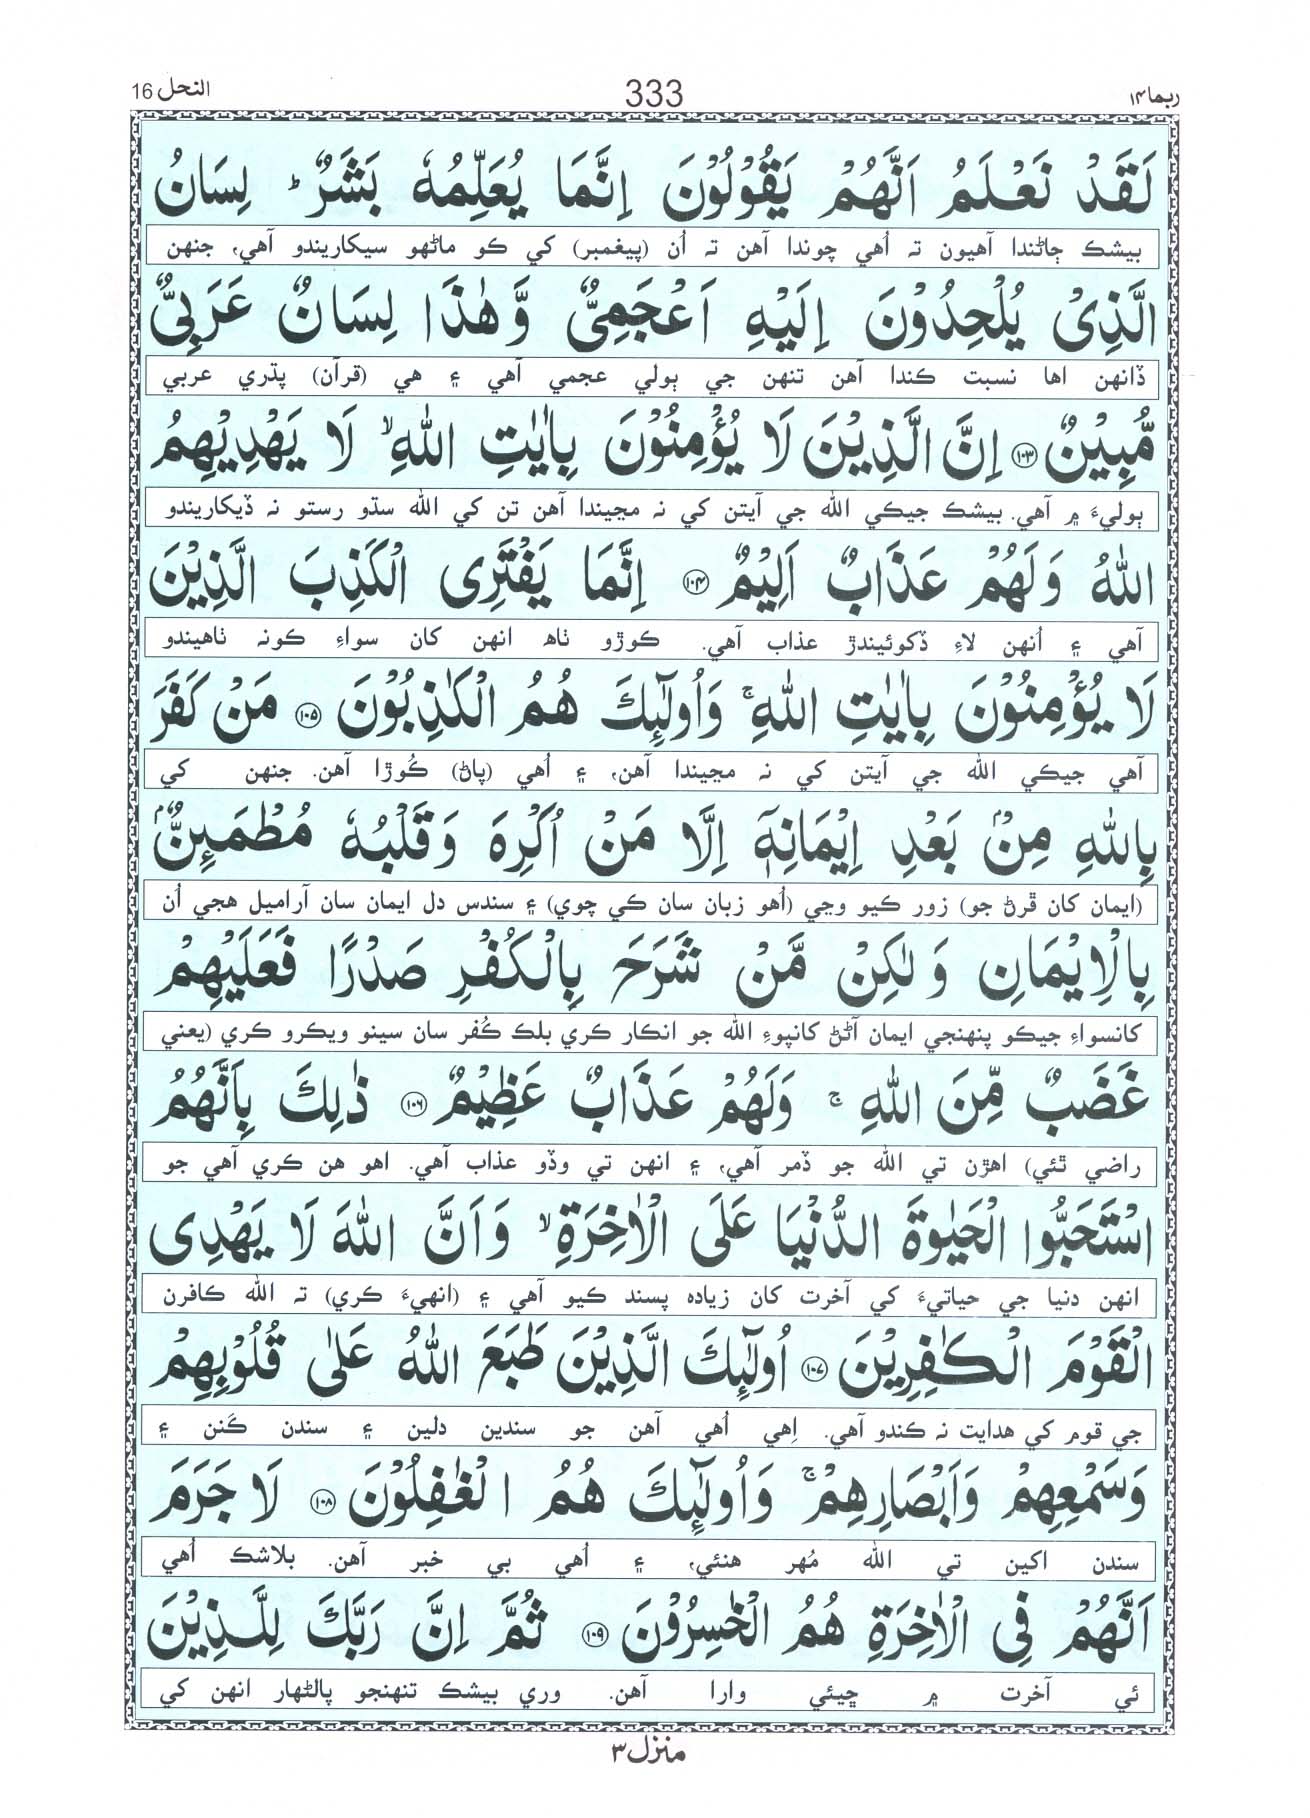 النحل 16
333
ربما ١٤
لَقَدْ نَعْلَمُ اَنَّهُمْ يَقُوْلُوْنَ اِنَّمَا يُعَلِّمُهٗ بَشَرٌ ؕ لِسَانُ
بيشڪ ڄاڻندا آهيون تہ اُهي چوندا آهن تہ اُن (پيغمبر) کي ڪو ماڻهو سيکاريندو آهي، جنهن
الَّذِىْ يُلْحِدُوْنَ اِلَيْهِ اَعْجَمِىٌّ وَّهٰذَا لِسَانٌ عَرَبِىٌّ
ڏانهن اها نسبت ڪندا آهن تنهن جي ٻولي عجمي آهي ۽ هي (قرآن) پڌري عربي
مُّبِيْنٌ ۝۱۰۳ اِنَّ الَّذِيْنَ لَا يُؤْمِنُوْنَ بِاٰيٰتِ اللّٰهِ ۙ لَا يَهْدِيْهِمُ
ٻوليءَ ۾ آهي. بيشڪ جيڪي الله جي آيتن کي نہ مڃيندا آهن تن کي الله سڌو رستو نہ ڏيکاريندو
اللّٰهُ وَلَهُمْ عَذَابٌ اَلِيْمٌ ۝۱۰۴ اِنَّمَا يَفْتَرِى الْكَذِبَ الَّذِيْنَ
آهي ۽ اُنهن لاءِ ڏکوئيندڙ عذاب آهي. ڪوڙو ٺاھ انهن کان سواءِ ڪونہ ٺاهيندو
لَا يُؤْمِنُوْنَ بِاٰيٰتِ اللّٰهِ ۚ وَاُولٰٓئِكَ هُمُ الْكٰذِبُوْنَ ۝۱۰۵ مَنْ كَفَرَ
آهي جيڪي الله جي آيتن کي نہ مڃيندا آهن، ۽ اُهي (پاڻ) ڪُوڙا آهن. جنهن کي
بِاللّٰهِ مِنْۢ بَعْدِ اِيْمَانِهٖٓ اِلَّا مَنْ اُكْرِهَ وَقَلْبُهٗ مُطْمَئِنٌّۢ
(ايمان کان ڦرڻ جو) زور ڪيو وڃي (اُهو زبان سان کي چوي) ۽ سندس دل ايمان سان آراميل هجي اُن
بِالْاِيْمَانِ وَلٰكِنْ مَّنْ شَرَحَ بِالْكُفْرِ صَدْرًا فَعَلَيْهِمْ
کانسواءِ جيڪو پنهنجي ايمان آڻڻ کانپوءِ الله جو انڪار ڪري بلڪ ڪُفر سان سينو ويڪرو ڪري (يعني
غَضَبٌ مِّنَ اللّٰهِ ۚ وَلَهُمْ عَذَابٌ عَظِيْمٌ ۝۱۰۶ ذٰلِكَ بِاَنَّهُمُ
راضي ٿئي) اهڙن تي الله جو ڏمر آهي، ۽ انهن تي وڏو عذاب آهي. اهو هن ڪري آهي جو
اسْتَحَبُّوا الْحَيٰوةَ الدُّنْيَا عَلَى الْاٰخِرَةِ ۙ وَاَنَّ اللّٰهَ لَا يَهْدِى
انهن دنيا جي حياتيءَ کي آخرت کان زياده پسند ڪيو آهي ۽ (انهيءَ ڪري) تہ الله ڪافرن
الْقَوْمَ الْكٰفِرِيْنَ ۝۱۰۷ اُولٰٓئِكَ الَّذِيْنَ طَبَعَ اللّٰهُ عَلٰى قُلُوْبِهِمْ
جي قوم کي هدايت نہ ڪندو آهي. اِهي اُهي آهن جو سندين دلين ۽ سندن ڪَنن ۽
وَسَمْعِهِمْ وَاَبْصَارِهِمْ ۚ وَاُولٰٓئِكَ هُمُ الْغٰفِلُوْنَ ۝۱۰۸ لَا جَرَمَ
سندن اکين تي الله مُهر هنئي، ۽ اُهي بي خبر آهن. بلاشڪ اُهي
اَنَّهُمْ فِى الْاٰخِرَةِ هُمُ الْخٰسِرُوْنَ ۝۱۰۹ ثُمَّ اِنَّ رَبَّكَ لِلَّذِيْنَ
ئي آخرت ۾ ڇيئي وارا آهن. وري بيشڪ تنهنجو پالڻهار انهن کي
منزل ۳